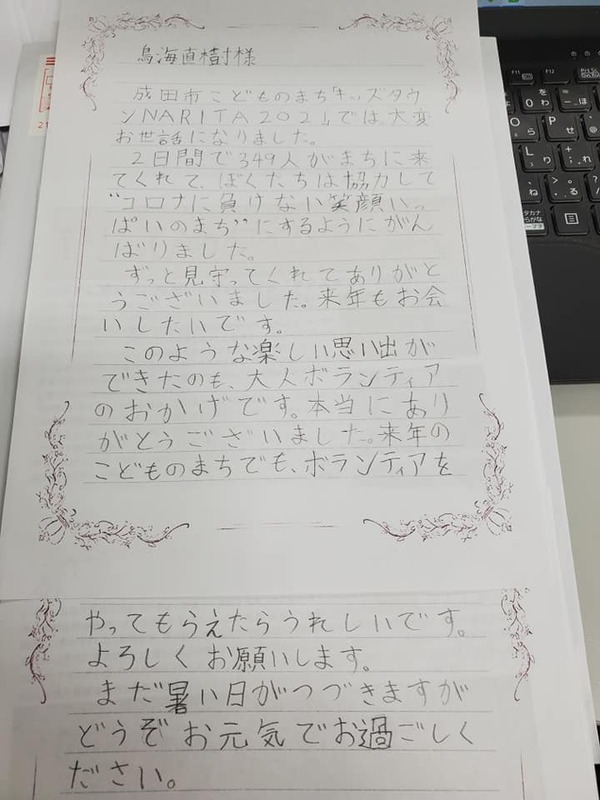 鳥海直樹様
成田市こどものまち「キッズタウ
ンNARITA2021」では大変
お世話になりました。
2日間で349人がまちに来
てくれて、ぼくたちは協力して
"コロナに負けない笑顔いっ
ぱいのまち"にするようにがん
ばりました。
ずっと見守ってくれてありがと
うございました。来年もお会
いしたいです。
このような楽しい思い出が
できたのも、大人ボランティア
のおかげです。本当にあり
がとうございました。来年の
こどものまちでも、ボランティアを
やってもらえたらうれしいです。
よろしくお願いします。
まだ暑い日がつづきますが
どうぞお元気でお過ごしく
ださい。